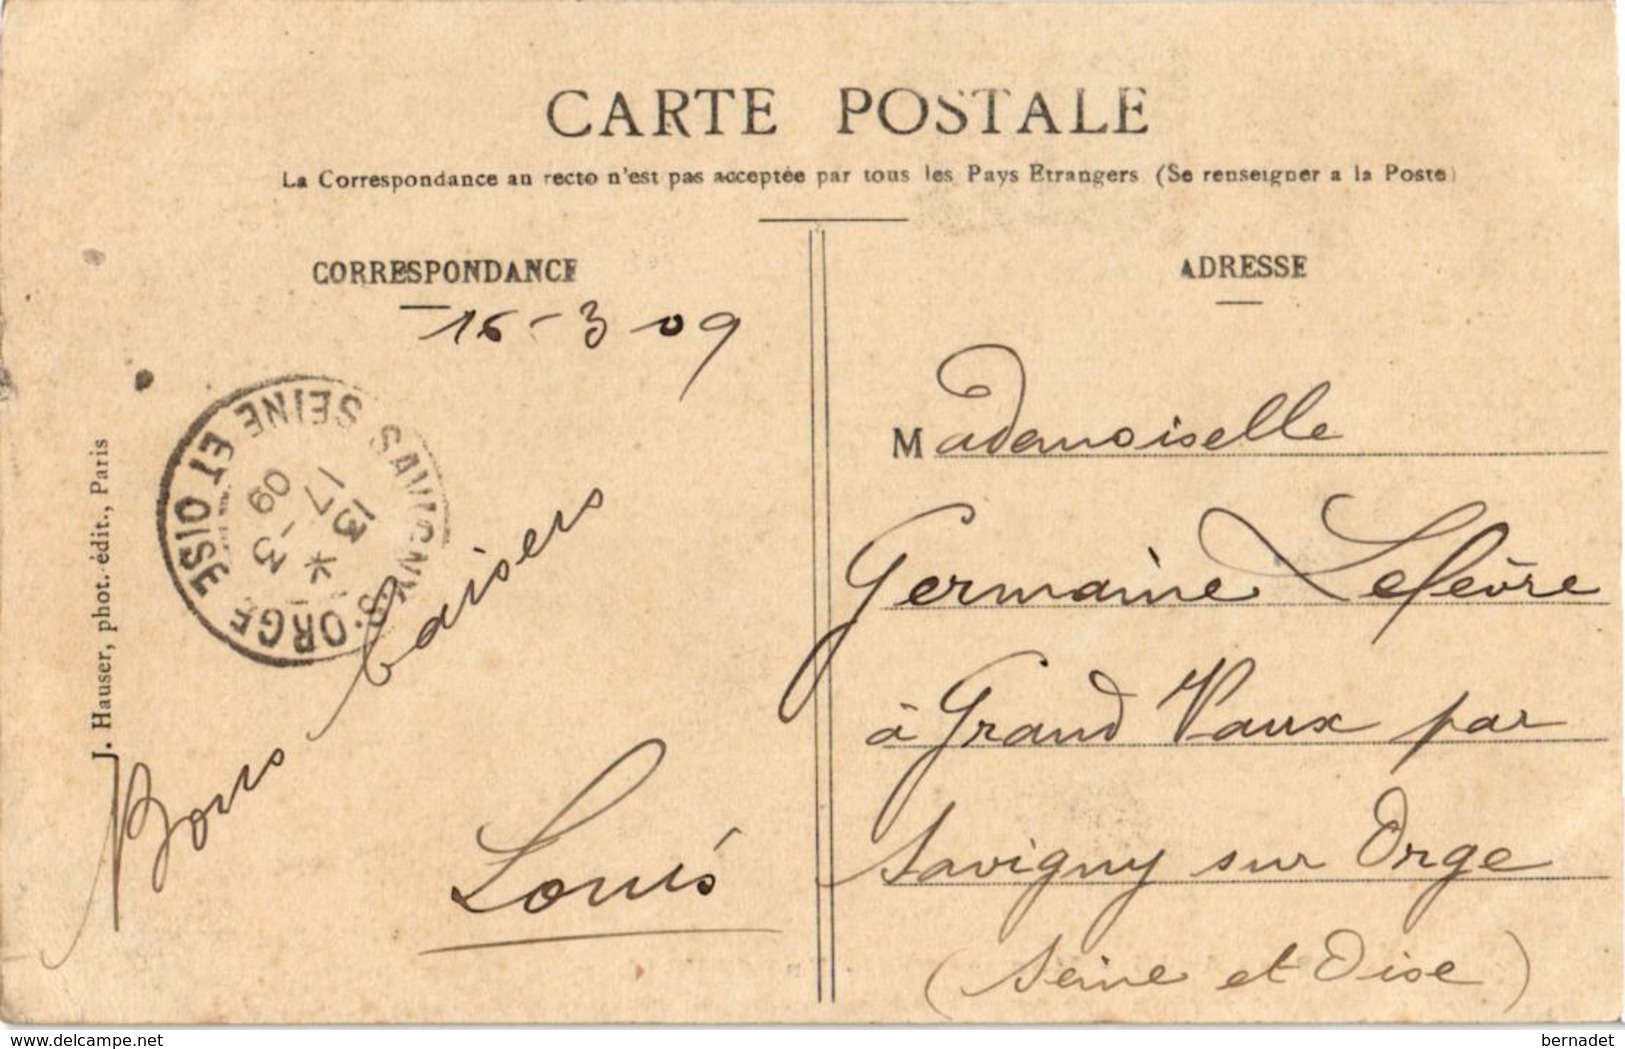 CARTE POSTALE
La Correspondance au recto n'est pas acceptée par tous les Pays Etrangers (Se renseigner a la Poste)
CORRESPONDANCE
16-3 09
J. Hauser, phot. édit., Paris
SAVIGNY-S-ORGE SEINE ET OISE
13
17 * -3
09
Bons baisers
Louis
ADRESSE
Mademoiselle
Germaine Lefèvre
à Grand Vaux par
Savigny sur Orge
(Seine et Oise)
www.delcampe.net
bernadet